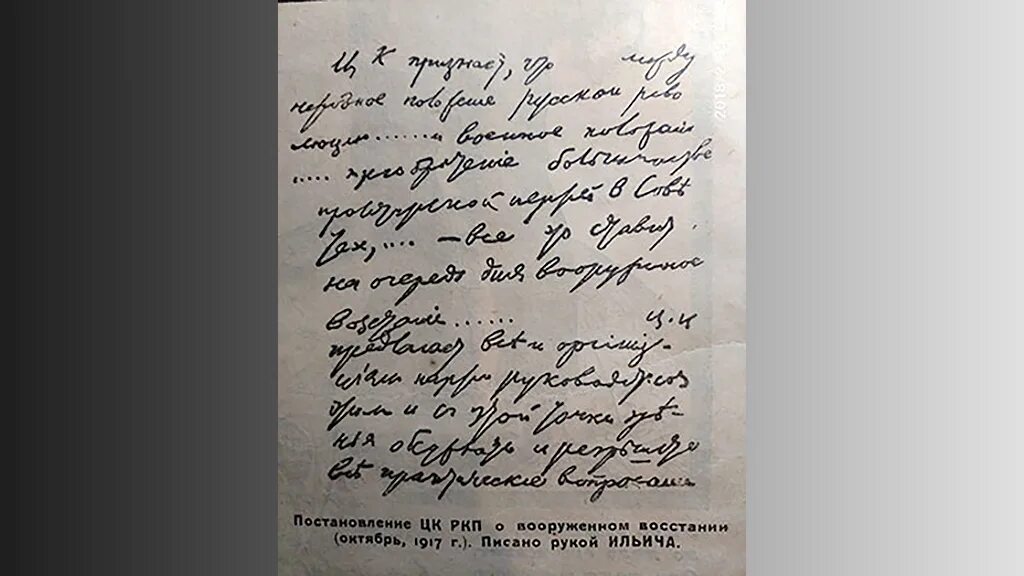 Ц К признает, что между
народное положение русской рево
люции ...... и военное положени
.... приобретение большинства
пролетарской партией в Сове
тах, .... — все это ставит
на очередь дня вооруженное
восстание ...... Ц. К
предлагает всѣм организ-
ціям партіи руководиться
этим и с этой точки зрѣ-
нія обсуждать и разрешать
всѣ практические вопросы
Постановление ЦК РКП о вооруженном восстании
(октябрь, 1917 г.). Писано рукой ИЛЬИЧА.